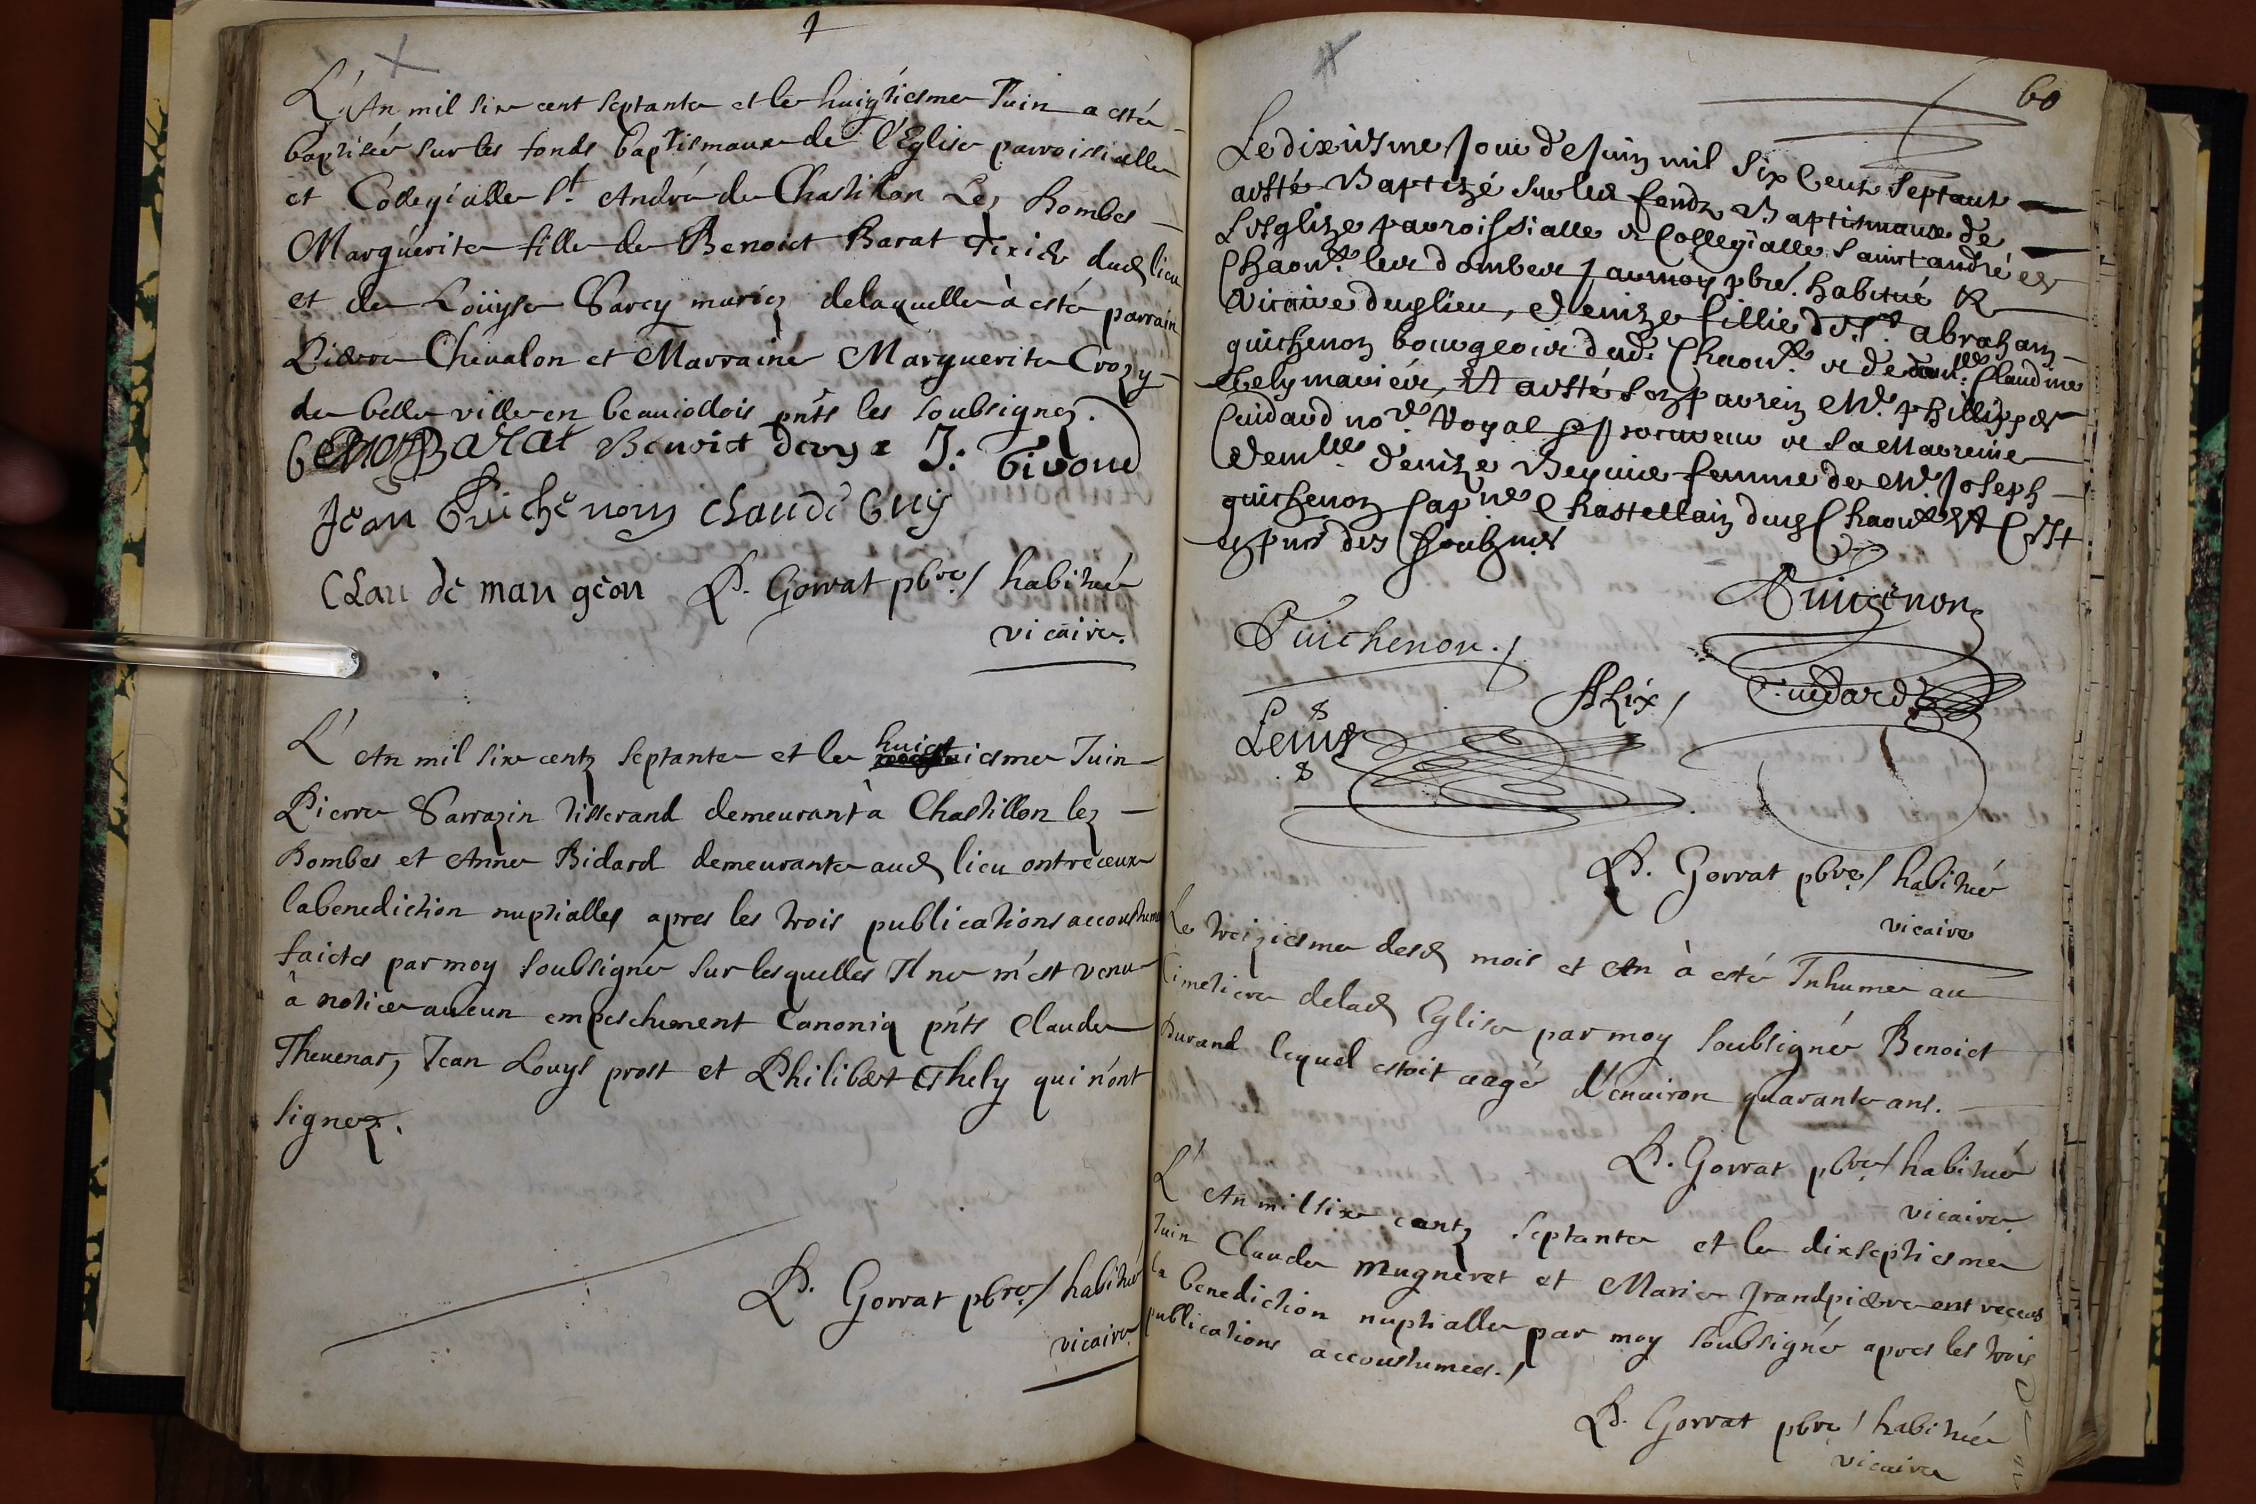 L'An mil six cent septante et le huigtiesme Juin a esté
baptisée sur les fonds baptismaux de l'Eglise parroissialle
et Collegialle St. André de Chastillon Lez Dombes
Marguerite fille de Benoict Barat Tixier dud lieu
et de Loüyse Sarcy mariez delaquelle à esté parrain
Pierre Chevalon et Marraine Marguerite Crozy
de belle ville en beauiollois pnts les soubsignez.
Barat Benoist J. Givoud
Jean Guichenon Claude Guy
Clau de man geon P. Gorrat pbre / habitué
vicaire.
L'An mil six centz septante et le huictiesme Juin
Pierre Sarrazin tisserand demeurant à Chastillon lez
Dombes et Anne Bidard demeurante aud lieu ont receux
la benediction nuptialle apres les trois publications accoustume
faictes par moy soubsigné sur lesquelles Il ne m'est venu
à notice aucun empeschement Canoniq pnts Claude
Thevenar, Jean Louys prost et Philibert Thely qui n'ont
signez.
P. Gorrat pbre / habitué
vicaire
60
Le dixiesme Jour de Juin mil six Cent septante
a esté Baptizé sur les fondz Baptismaux de
L'esglize parroissialle et Collegialle Sainct andré
Chaon. les dombes par moy pbre. habitué &
vicaire dud lieu, denize fillie de Sr. abraham
guichenon bourgeois dud. Chaon. et de dam.lle Claudine
mariés, Et a esté son parrein Mr. phillippes
Cuidard no.re Royal procureur et sa Marreine
dem.lle denize femme de Mr. Joseph
guichenon cap.ne Chastellain dud Chaon.
soubznés
Guichenon
Guichenon.
Alix
Cuidard
P. Gorrat pbre / habitué
vicaire
Le treiziesme desd mois et An à esté Inhumé au
Cimetiere delad Eglise par moy soubsigné Benoict
Durand lequel estoit aagé d'enuiron quarante ans.
P. Gorrat pbre / habitué
vicaire.
L'An mil six centz septante et le dixseptiesme
Juin Claude Mugneret et Marie grandpierre ont receus
la benediction nuptialle par moy soubsigné apres les trois
publications accoustumées.
P. Gorrat pbre / habitué
vicaire